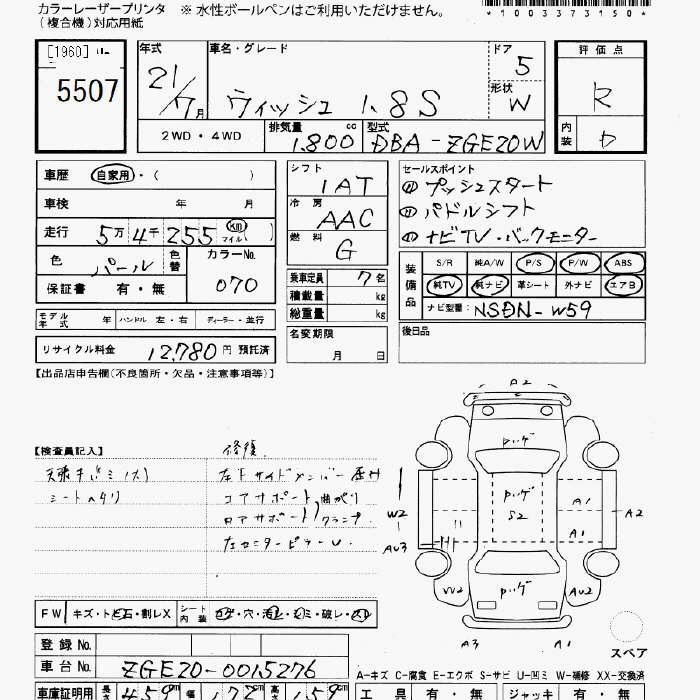 カラーレーザープリンタ
(複合機)対応用紙
※ 水性ボールペンはご利用いただけません。
*1003373150*
[1960]
5507
年式
21/7月
車名・グレード
ウィッシュ 1.8S
ドア
5
形状
W
評価点
R
内装
D
2WD ・ 4WD
排気量
1.800 cc
型式
DBA-ZGE20W
車歴 自家用・( )
車検 年 月
走行 5万4千255 km マイル
色 パール 色替
カラーNo.
070
保証書 有・無
シフト
1AT
冷房
AAC
燃料
G
セールスポイント
プッシュスタート
パドルシフト
ナビTV・バックモニター
乗車定員 7名
積載量 kg
総重量 kg
装備品
S/R 純A/W P/S P/W ABS
純TV 純ナビ 革シート 外ナビ エアB
ナビ型番: NSDN-W59
モデル年式 年 ハンドル 左・右 ディーラー・並行
名変期限
月 日
後日品
リサイクル料金 12,780円 預託済
【出品店申告欄(不良箇所・欠品・注意事項等)】
【検査員記入】
修復.
シートヘタリ
コアサポート 曲がり
ロアサポート クランプ.
左センターピラーU.
A2
W2
AU3
S2
A1
A1
A2
W2
AU2
A3
A1
スペア
FW キズ・トビ石・割レX
シート内装
登録No.
車台No. ZGE20-0015276
A-キズ C-腐食 E-エクボ S-サビ U-凹ミ W-補修 XX-交換済
車庫証明用 長さ 459cm 幅 172 高さ 159
工具 有・無 ジャッキ 有・無